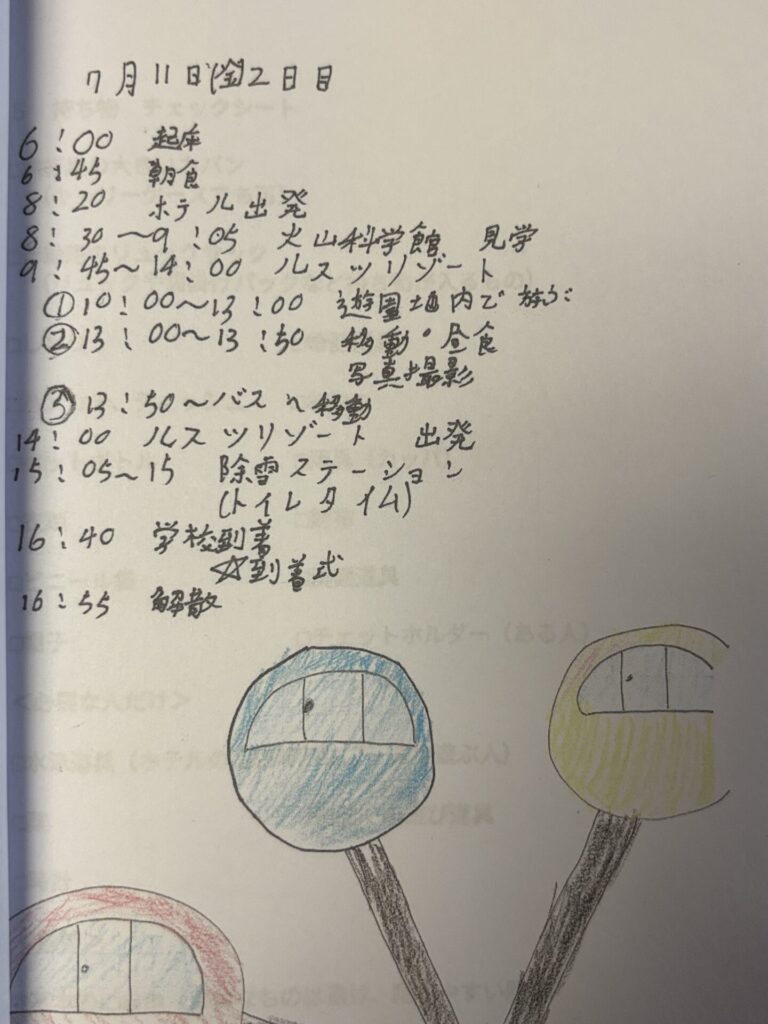 7月11日(金)2日目
6:00 起床
6:45 朝食
8:20 ホテル出発
8:30~9:05 火山科学館 見学
9:45~14:00 ルスツリゾート
①10:00~13:00 遊園地内で遊ぶ
②13:00~13:50 移動・昼食
写真撮影
③13:50~バスへ移動
14:00 ルスツリゾート 出発
15:05~15 除雪ステーション
(トイレタイム)
16:40 学校到着
☆到着式
16:55 解散